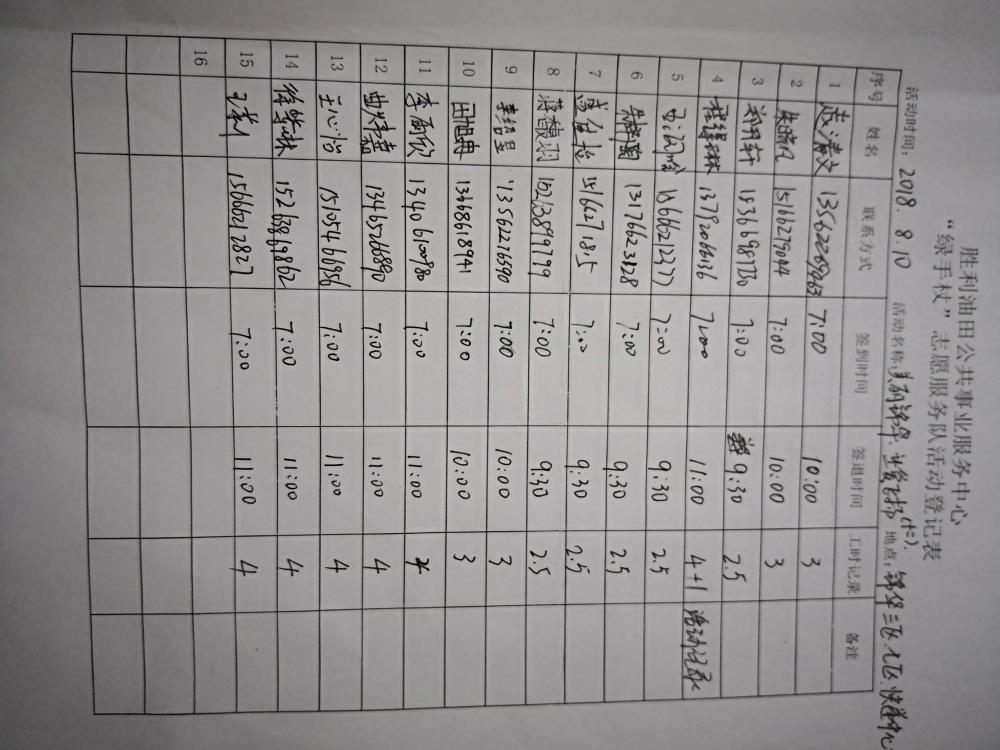 胜利油田公共事业服务中心
“绿手杖”志愿服务队活动登记表
活动时间: 2018. 8. 10 活动名称: 美丽锦华. 飞扬(十二). 地点: 锦华三区、七区、快递中心
序号 姓名 联系方式 签到时间 签退时间 工时记录 备注
1 13562269863 7:00 10:00 3
2 朱晓凡 15166279044 7:00 10:00 3
3 轩 15366987730 7:00 9:30 2.5
4 程缇琳 13792066136 7:00 11:00 4+1 活动记录
5 15666212377 7:00 9:30 2.5
6 13176623828 7:00 9:30 2.5
7 7:00 9:30 2.5
8 蒋馥羽 15213899799 7:00 9:30 2.5
9 李绍昱 13562276690 7:00 10:00 3
10 田旭冉 13368618941 7:00 10:00 3
11 李雨欣 13406100980 7:00 11:00 4
12 曲烨嘉 13465266890 7:00 11:00 4
13 王心怡 15105466696 7:00 11:00 4
14 徐琳 15263869862 7:00 11:00 4
15 15666412827 7:00 11:00 4
16